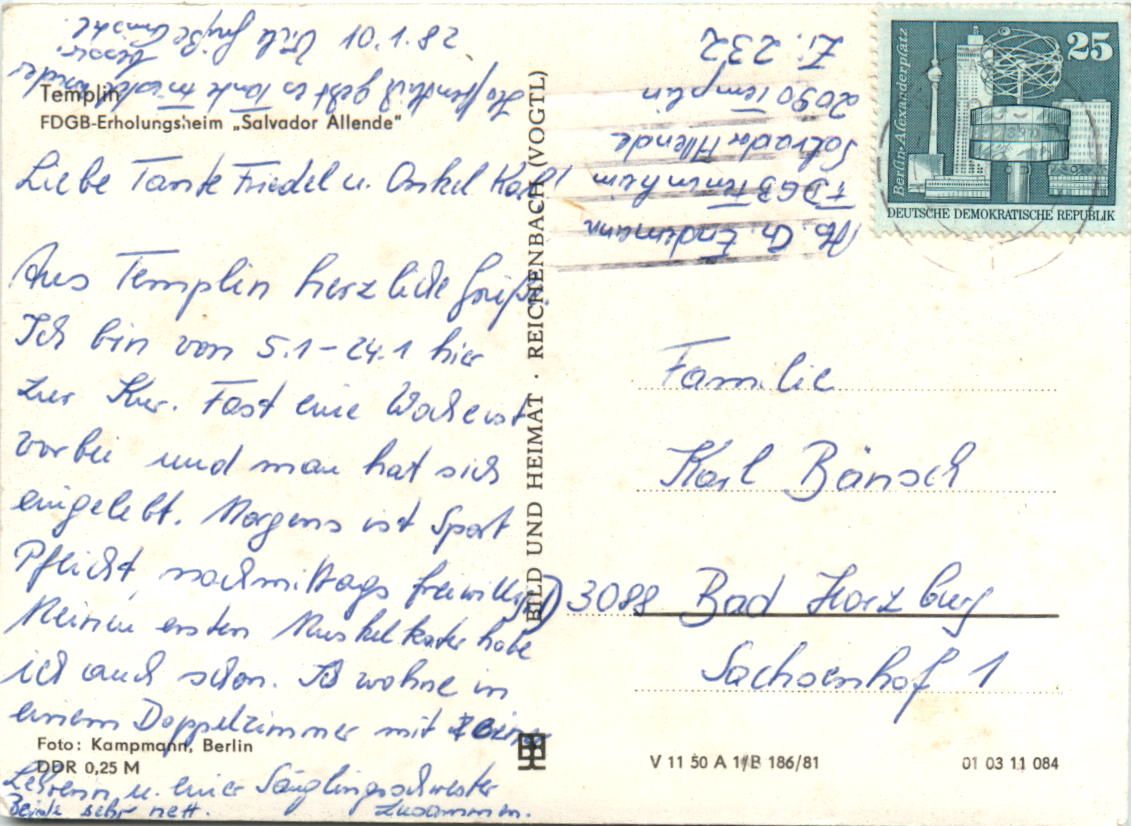 Templin
FDGB-Erholungsheim „Salvador Allende“
Liebe Tante Friedel u. Onkel Karl!
Aus Templin herzliche Grüße.
Ich bin von 5.1-24.1 hier
zur Kur. Fast eine Woche ist
vorbei und man hat sich
eingelebt. Morgens ist Sport
Pflicht, nachmittags freiwillig.
Meinen ersten Muskelkater habe
ich auch schon. Ich wohne in
einem Doppelzimmer mit einer
Lehrerin u. einer Säuglingsschwester
Beide sehr nett. zusammen.
Hoffentlich geht es Tante Friedel wieder
besser.
Viele Grüße
10.1.82
Foto: Kampmann, Berlin
DDR 0,25 M
BILD UND HEIMAT · REICHENBACH (VOGTL)
Ab. Ch. Endemann
FDGB Ferienheim
Salvador Allende
2090 Templin
Zi. 232
25
Berlin-Alexanderplatz
DEUTSCHE DEMOKRATISCHE REPUBLIK
Familie
Karl Bänsch
3088 Bad Harzburg
Sachsenhof 1
V 11 50 A 1/B 186/81
01 03 11 084